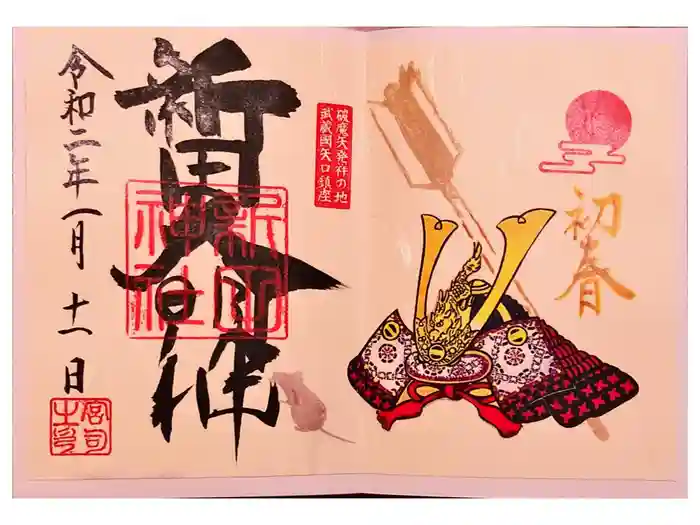 初春
破魔矢発祥の地
武蔵國矢口鎮座
新田大神
新田
神社
令和二年一月十一日
宮司
之印